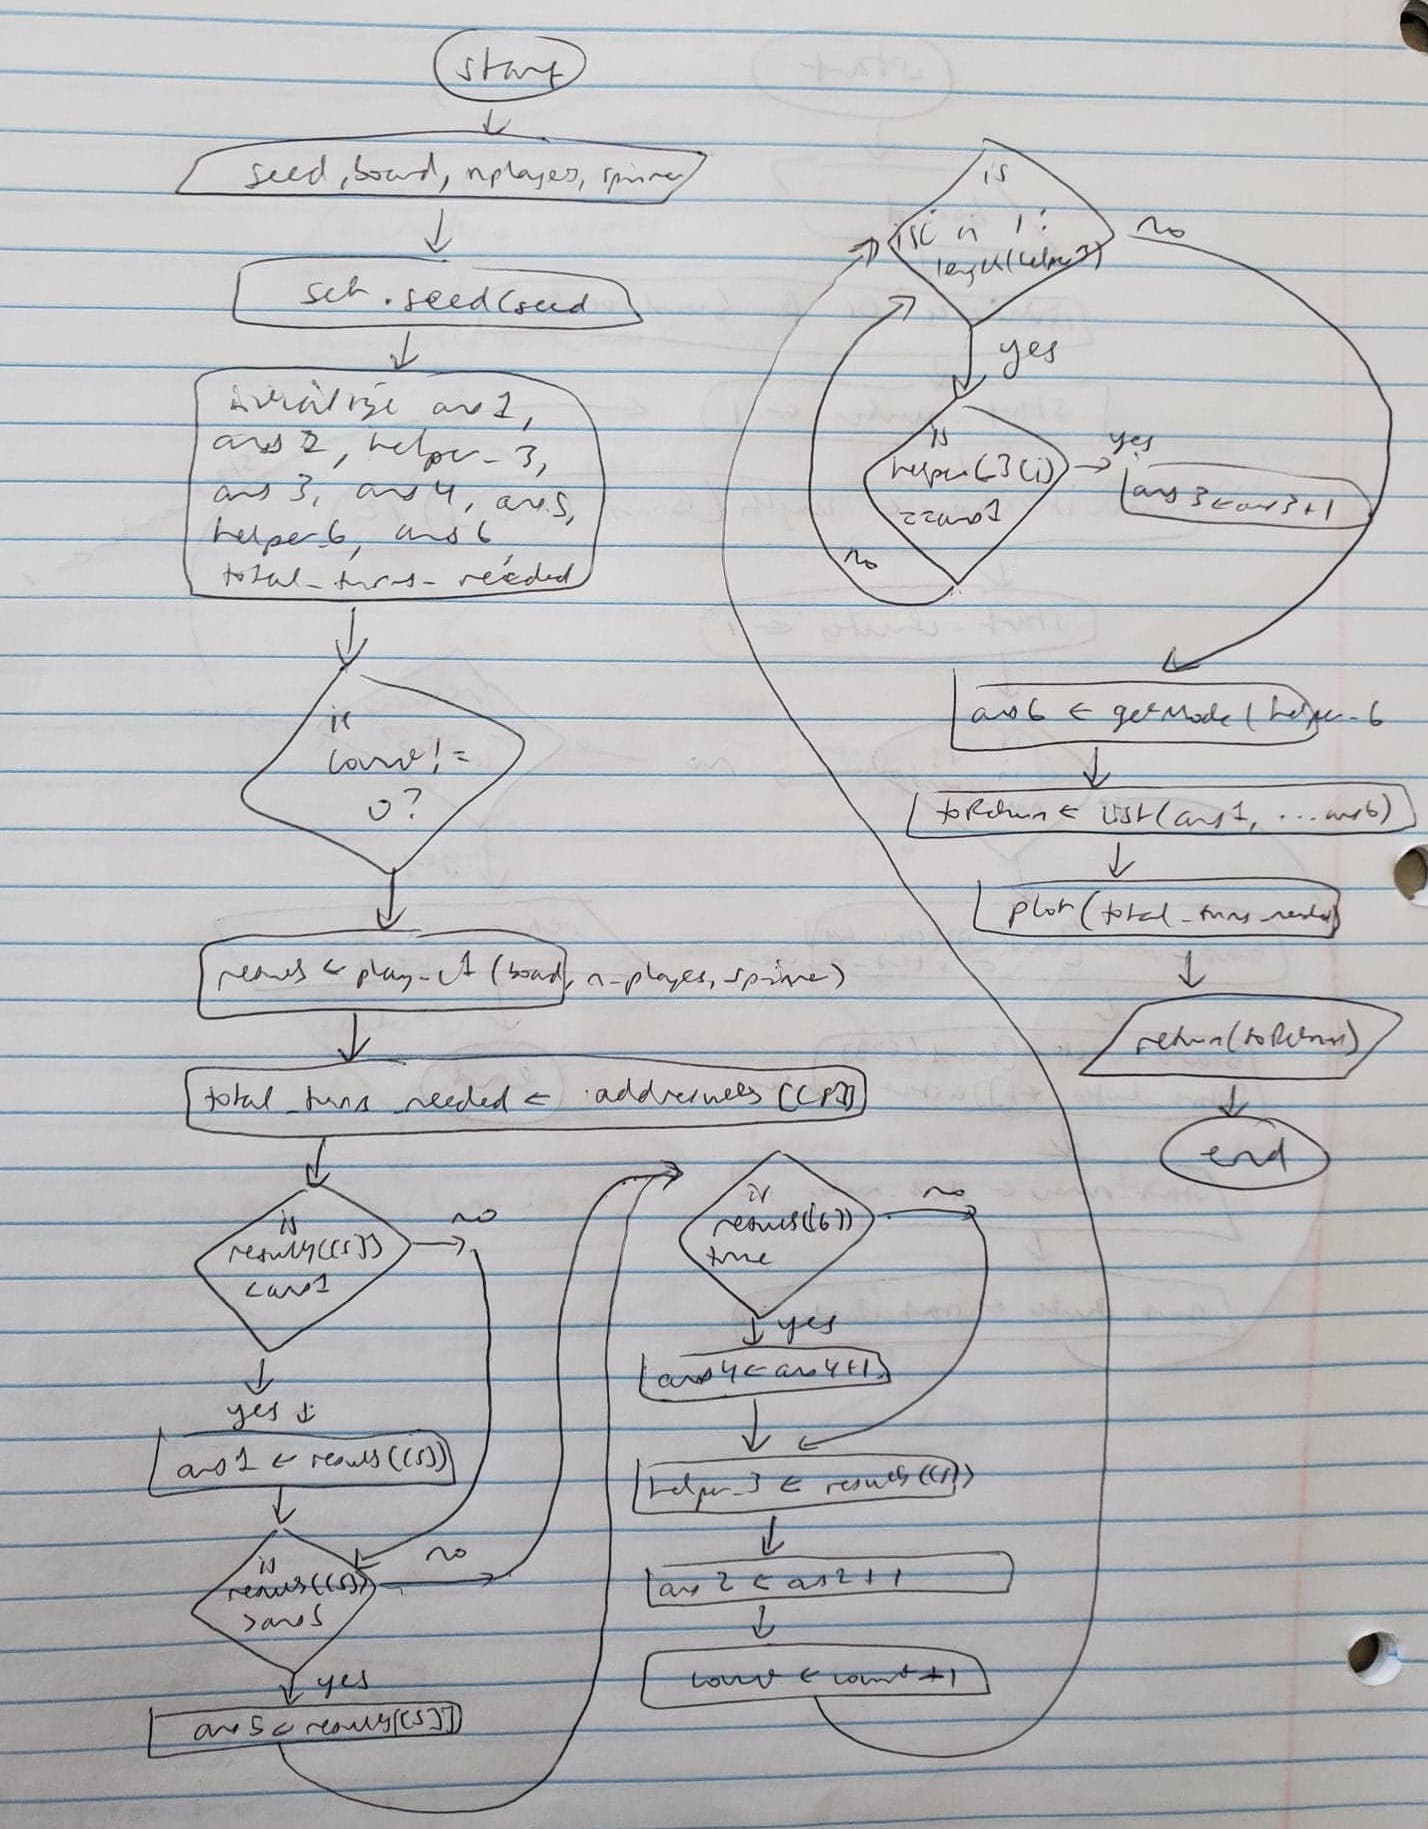 start
seed, board, nplayes, spinner
set.seed(seed
initialize ans1,
ans2, helper_3,
ans3, ans4, ans5,
helper_6, ans6,
total_turns_needed
is
count !=
0?
results ← play_cl (board, n-players, spinner)
total_turns_needed ←
is
results[[5]]
< ans1
no
yes ↓
ans1 ← results[[5]]
is
results[[5]]
> ans5
no
yes
ans5 ← results[[5]]
is
results[[6]]
true
no
yes
ans4 ← ans4+1
helper_3 ← results[[5]]
ans2 ← ans2+1
count ← count+1
is
in 1:
length(helper_3)
no
yes
is
helper_3(i)
== ans1
yes
ans3 ← ans3+1
no
ans6 ← getMode(helper_6
toReturn ← List(ans1, ... ans6)
plot(total_turns_needed)
return(toReturn)
end